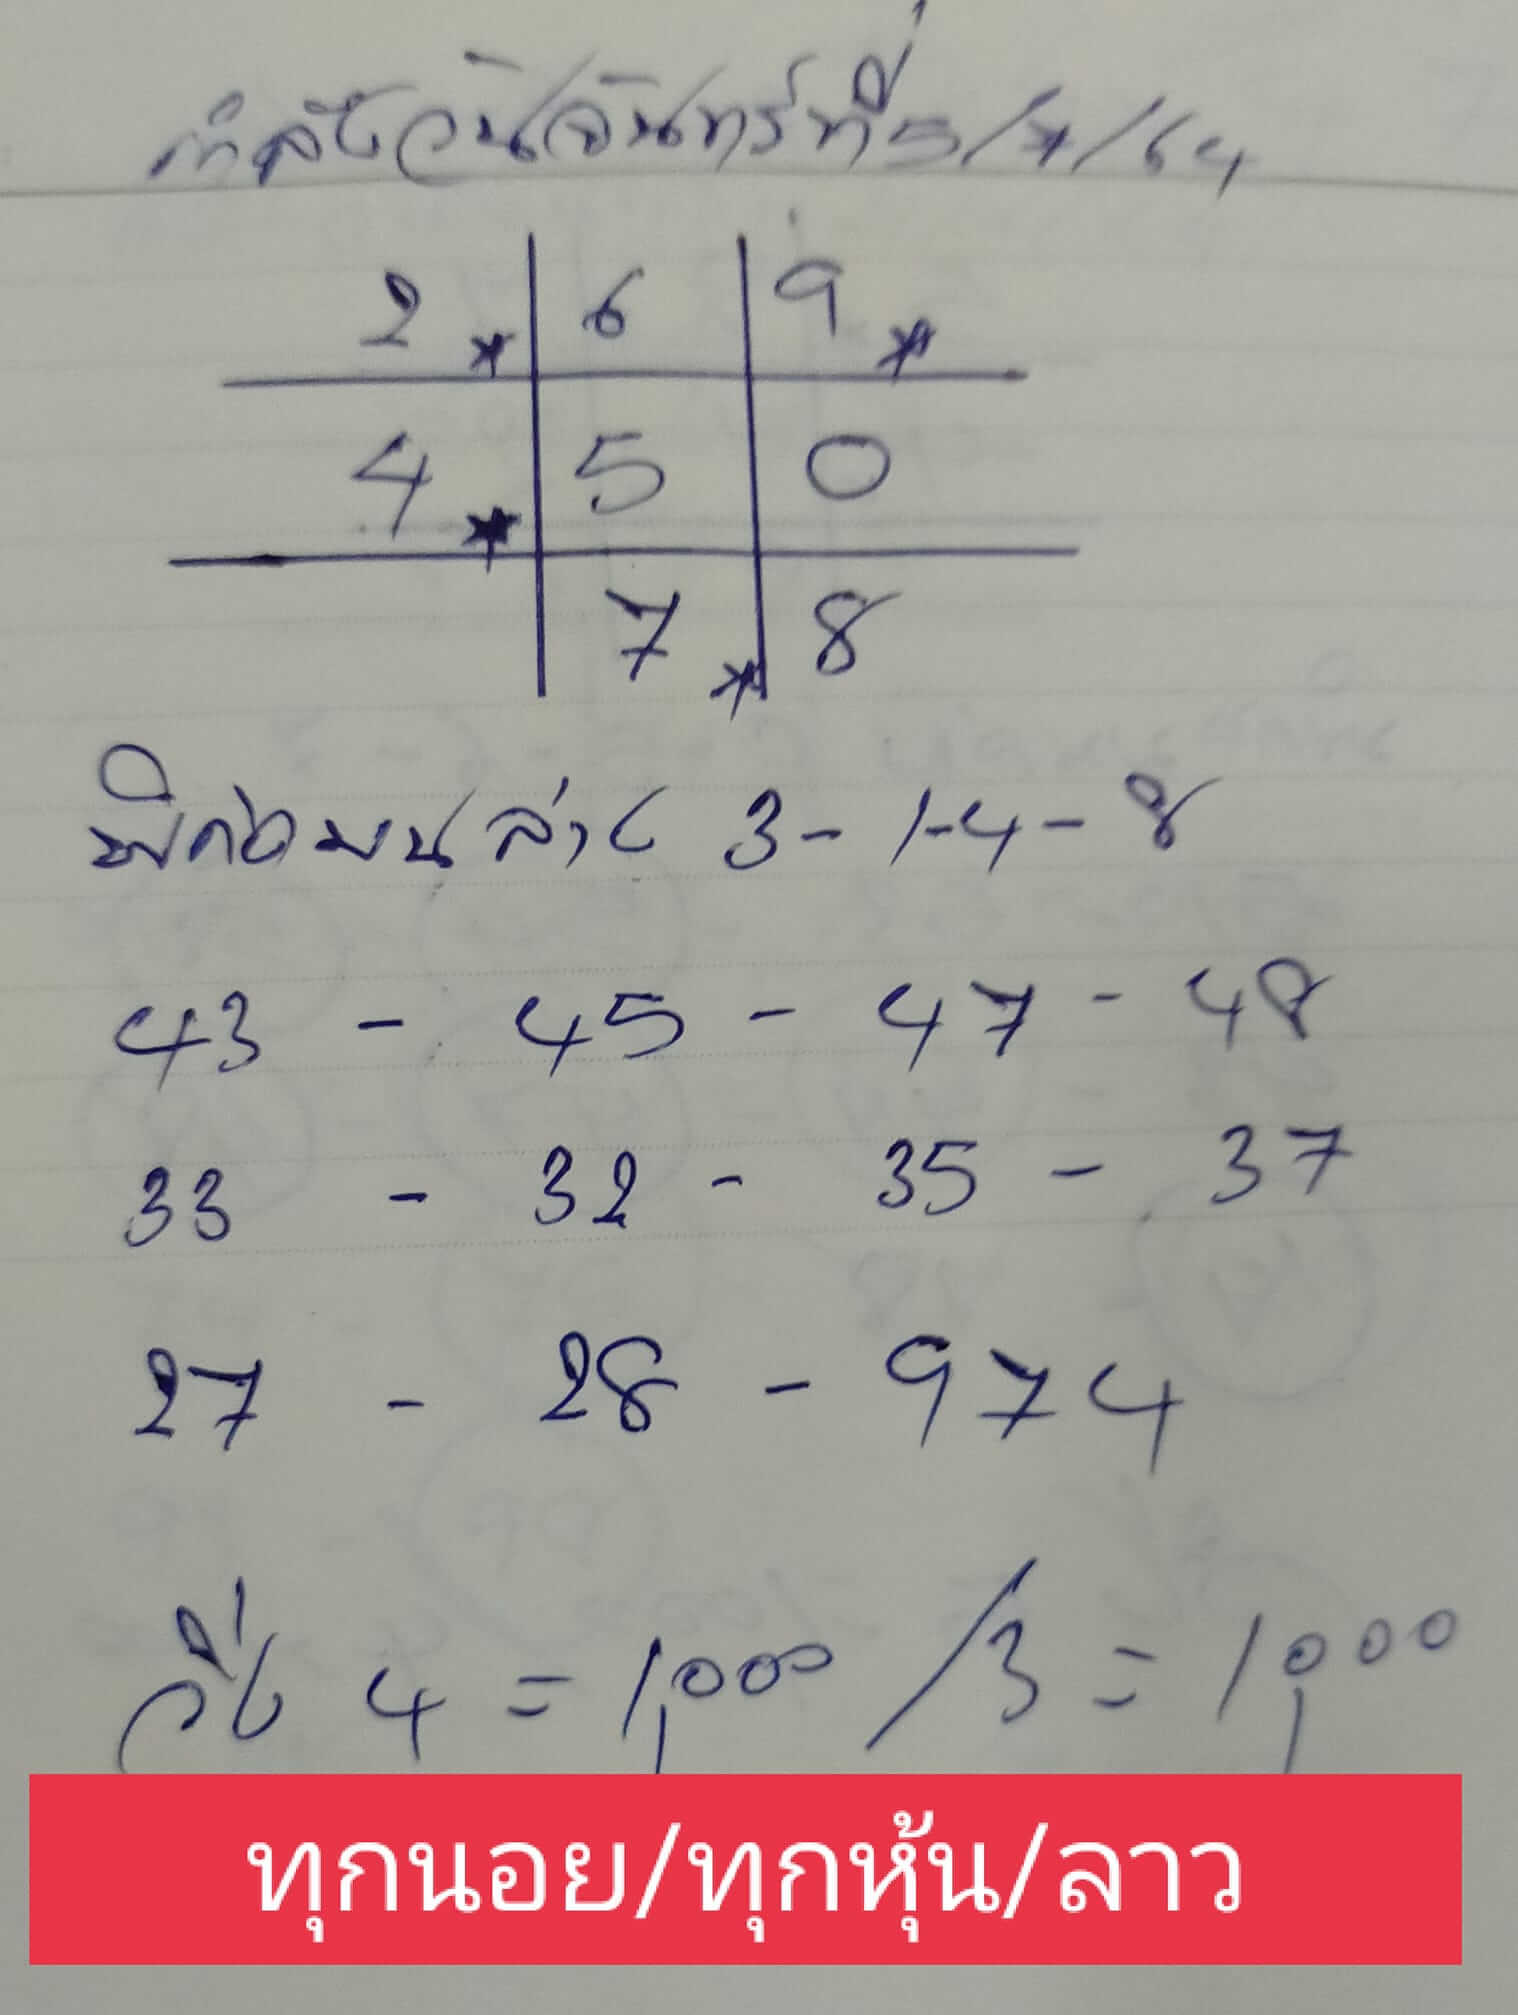 กำลังวันจันทร์ที่ 5/7/64
2* 6 9*
4* 5 0
7* 8
พิกัดบนล่าง 3-1-4-8
43 - 45 - 47 - 48
33 - 32 - 35 - 37
27 - 28 - 974
วิ่ง 4 = 1,000 /3 = 1,000
ทุกนอย/ทุกหุ้น/ลาว